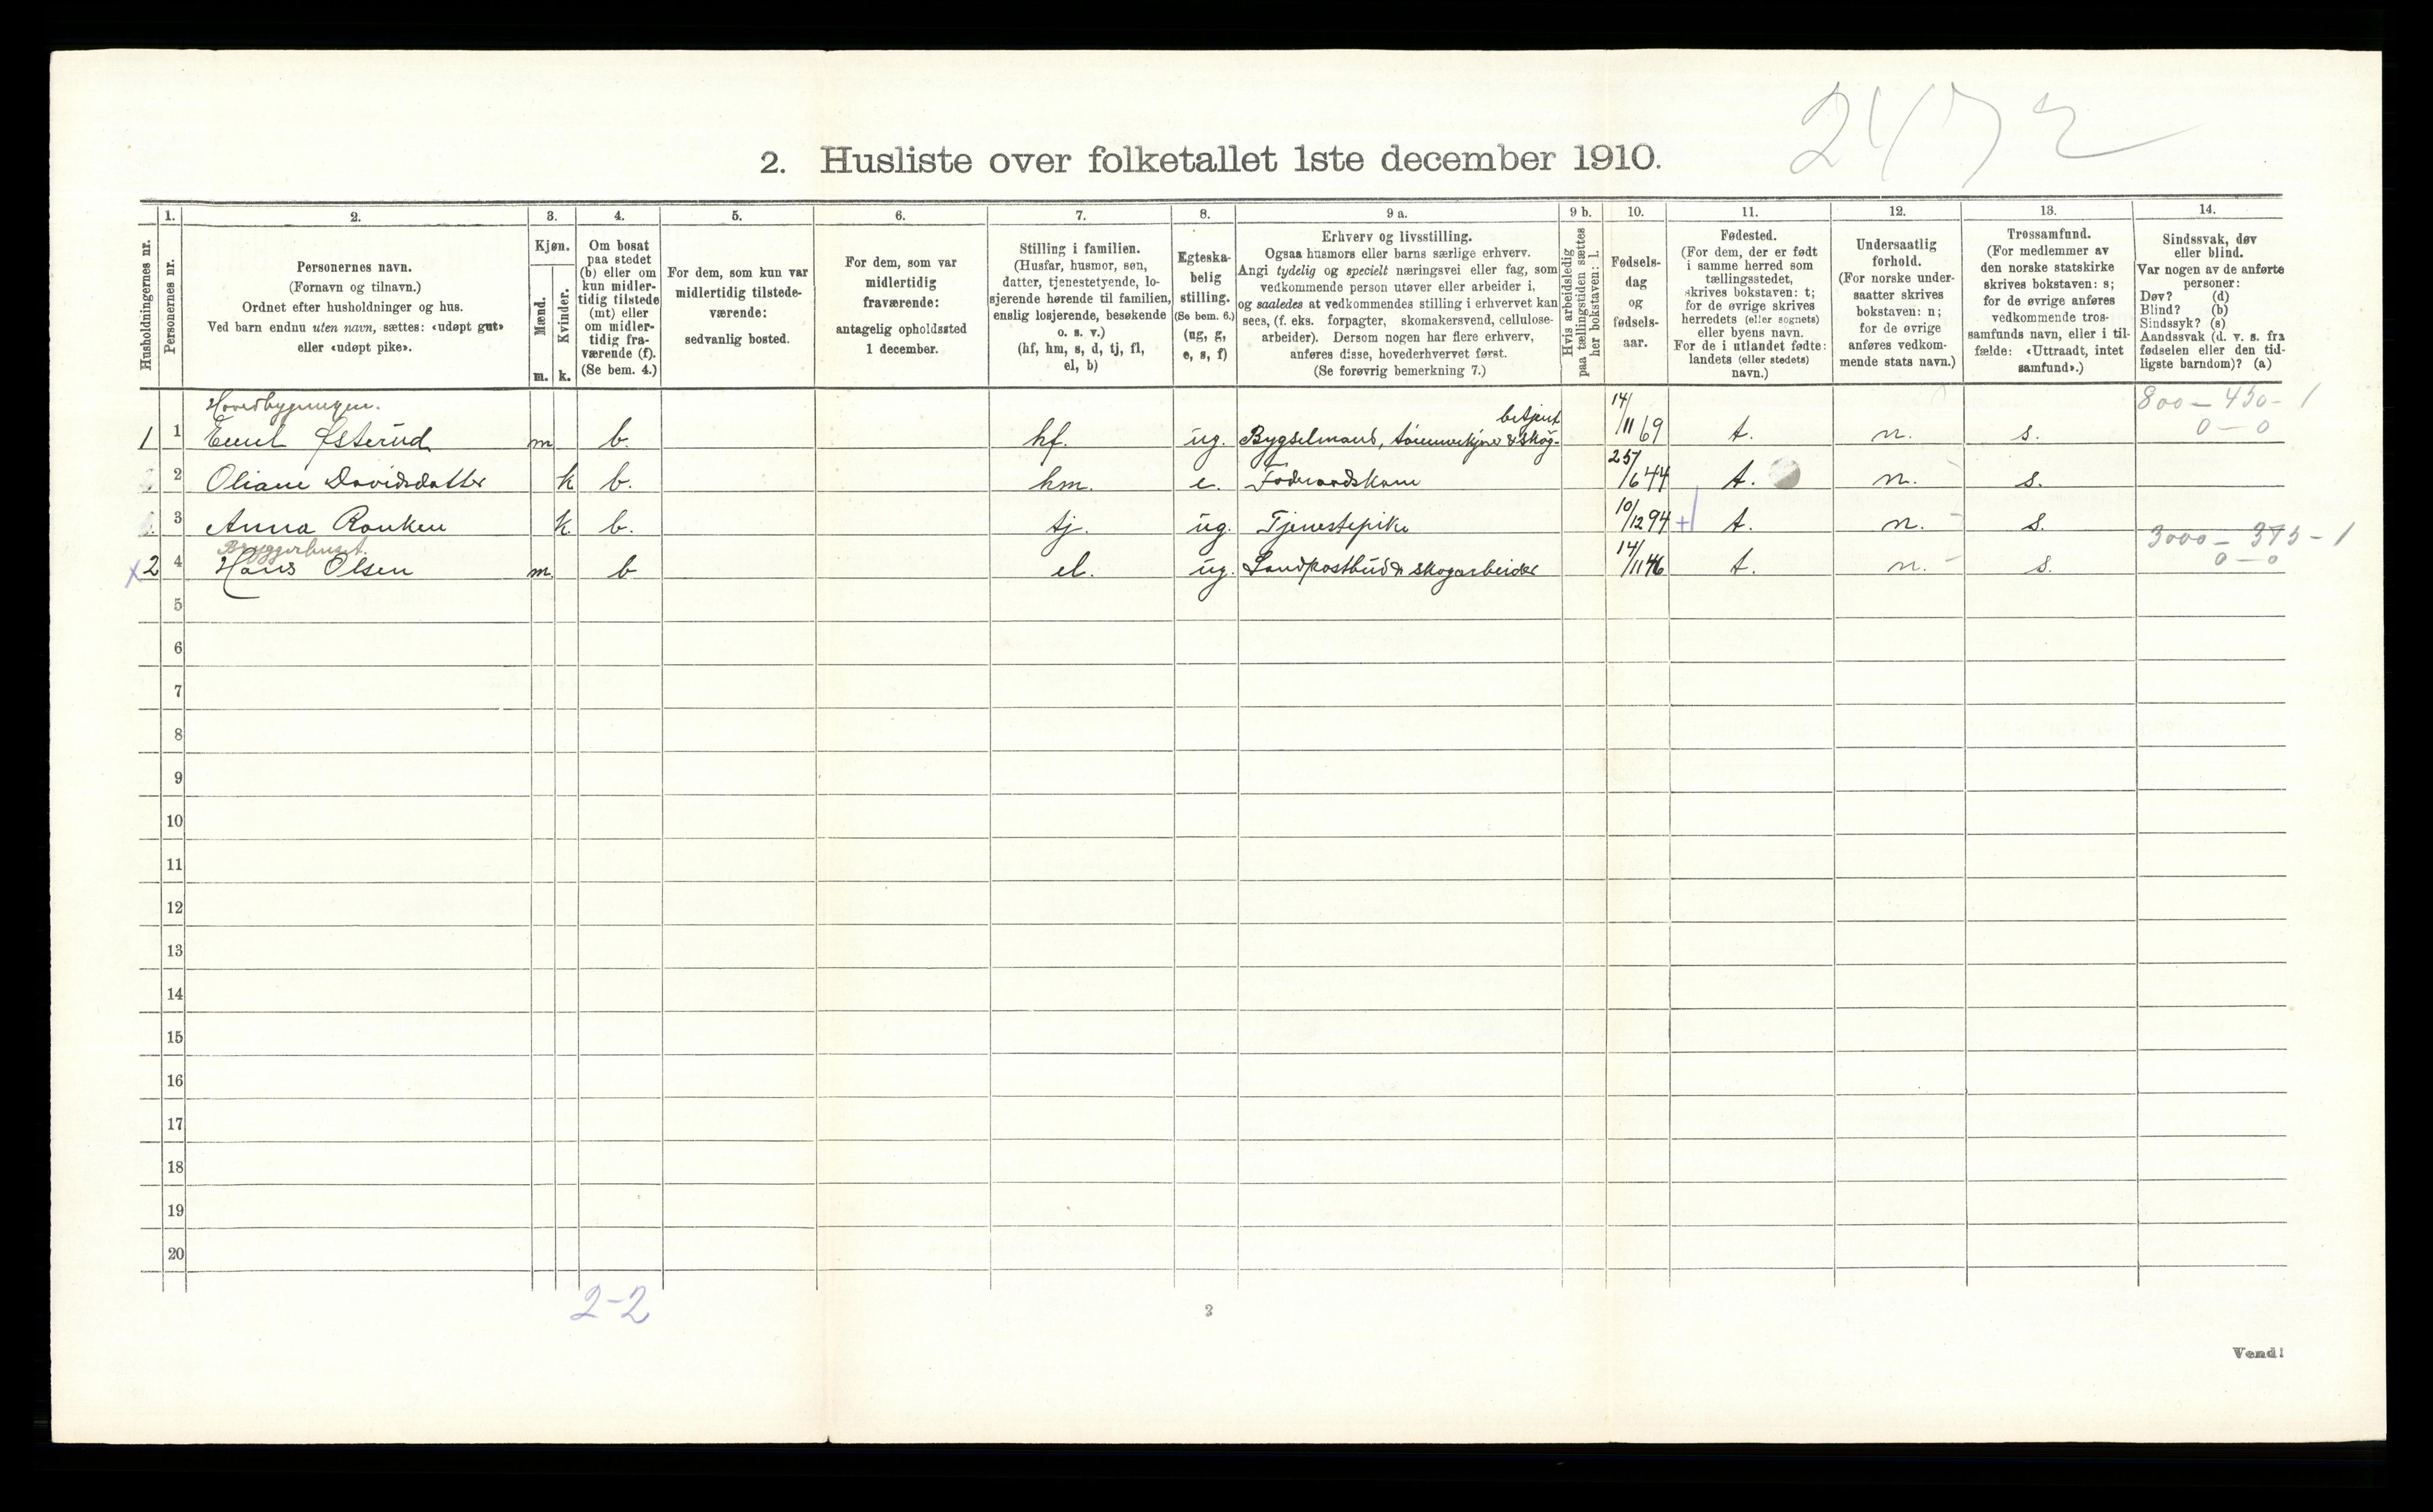 2472
2. Husliste over folketallet 1ste december 1910.
Husholdningernes nr.
1.
Personernes nr.
2.
Personernes navn.
(Fornavn og tilnavn.)
Ordnet efter husholdninger og hus.
Ved barn endnu uten navn, sættes: «udøpt gut»
eller «udøpt pike».
3.
Kjøn.
Mænd.
Kvinder.
m. k.
4.
Om bosat
paa stedet
(b) eller om
kun midler-
tidig tilstede
(mt) eller
om midler-
tidig fra-
værende (f).
(Se bem. 4.)
5.
For dem, som kun var
midlertidig tilstede-
værende:
sedvanlig bosted.
6.
For dem, som var
midlertidig
fraværende:
antagelig opholdssted
1 december.
7.
Stilling i familien.
(Husfar, husmor, søn,
datter, tjenestetyende, lo-
sjerende hørende til familien,
enslig losjerende, besøkende
o. s. v.)
(hf, hm, s, d, tj, fl,
el, b)
8.
Egteska-
belig
stilling.
(Se bem. 6.)
(ug, g,
e, s, f)
9 a.
Erhverv og livsstilling.
Ogsaa husmors eller barns særlige erhverv.
Angi tydelig og specielt næringsvei eller fag, som
vedkommende person utøver eller arbeider i,
og saaledes at vedkommendes stilling i erhvervet kan
sees, (f. eks. forpagter, skomakersvend, cellulose-
arbeider). Dersom nogen har flere erhverv,
anføres disse, hovederhvervet først.
(Se forøvrig bemerkning 7.)
9 b.
Hvis arbeidsledig
paa tællingstiden sættes
her bokstaven: l.
10.
Fødsels-
dag
og
fødsels-
aar.
11.
Fødested.
(For dem, der er født
i samme herred som
tællingsstedet,
skrives bokstaven: t;
for de øvrige skrives
herredets (eller sognets)
eller byens navn.
For de i utlandet fødte:
landets (eller stedets)
navn.)
12.
Undersaatlig
forhold.
(For norske under-
saatter skrives
bokstaven: n;
for de øvrige
anføres vedkom-
mende stats navn.)
13.
Trossamfund.
(For medlemmer av
den norske statskirke
skrives bokstaven: s;
for de øvrige anføres
vedkommende tros-
samfunds navn, eller i til-
fælde: «Uttraadt, intet
samfund».)
14.
Sindssvak, døv
eller blind.
Var nogen av de anførte
personer:
Døv? (d)
Blind? (b)
Sindssyk? (s)
Aandssvak (d. v. s. fra
fødselen eller den tid-
ligste barndom)? (a)
Hovedbygningen. 800 - 450 - 1
1 1 Emil Østerud m b. hf. ug. Bygselmand, tømmerkjører & skog- betjent 14/11 69 t. n. s. 0 - 0
2 Oliane Davidsdatter k b. hm. e. Føderaadskone 25/6 44 t. n. s.
3 Anna Ronken k b. tj. ug. Tjenestepike 10/12 94 t. n. s.
Bryggerhuset. 3000 - 375 - 1
x 2 4 Hans Olsen m. b el. ug. Landpostbud & skogarbeider 14/11 46 t. n. s. 0 - 0
5
6
7
8
9
10
11
12
13
14
15
16
17
18
19
20
2-2
2
Vend!